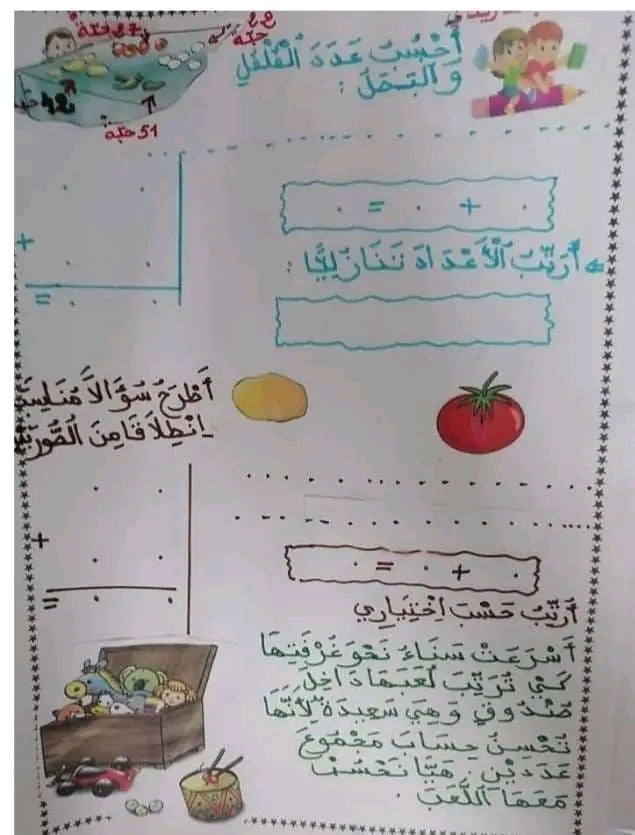 27 حبّة
حبّة
48
51 حبّة
أَحْسُبُ عَدَدَ الْفُلْفُلِ
وَالْبَصَلِ :
+ =
+
=
أُرَتِّبُ الْأَعْدَادَ تَنَازُلِيًّا :
أَطْرَحُ سُؤَالاً مُنَاسِبً
اِنْطِلَاقًا مِنَ الصُّورَتَيْ
+
=
+ =
أُرَتِّبُ حَسَبَ اِخْتِيَارِي
أَسْرَعَتْ سَنَاءُ نَحْوَ غُرْفَتِهَا
كَيْ تُرَتِّبَ لُعَبَهَا دَاخِلَ
صُنْدُوقٍ وَهِيَ سَعِيدَةٌ لِأَنَّهَا
تُحْسِنُ حِسَابَ مَجْمُوعِ
عَدَدَيْنِ. هَيَّا نَحْسُبُ
مَعَهَا اللُّعَبَ.